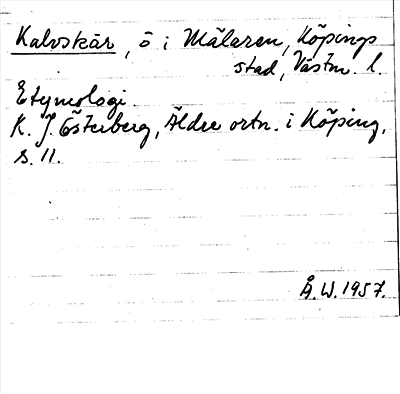 Kalvskär, ö i Mälaren, Köpings
stad, Västm. l.
Etymologi.
K. J. Österberg, Äldre ortn. i Köping,
s. 11.
Å. W. 1957.